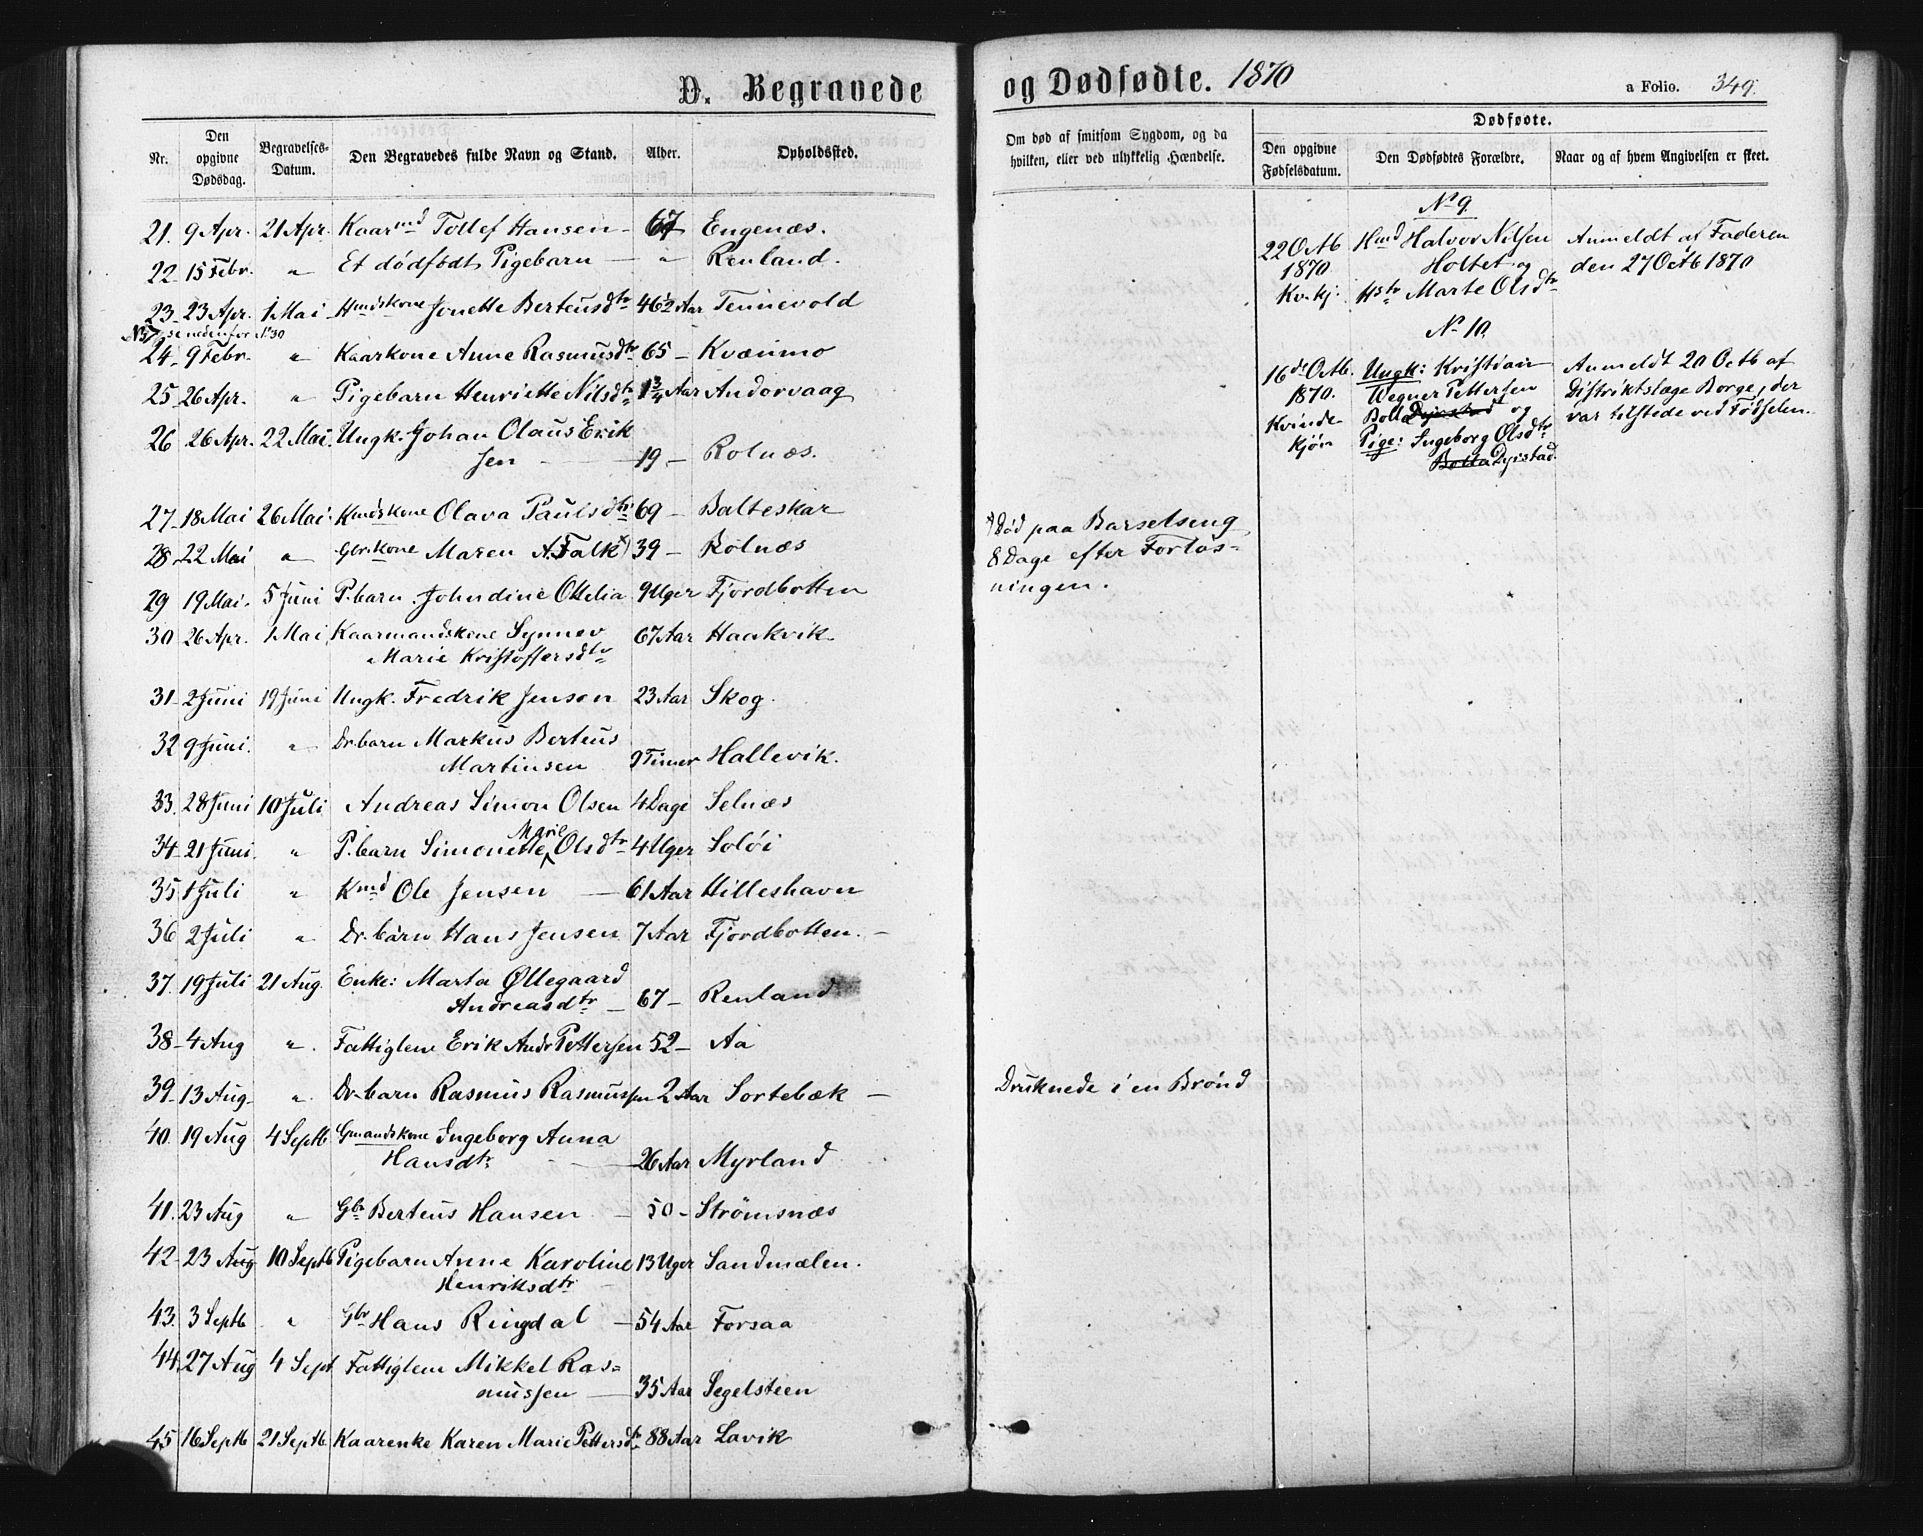 D. Begravede
Nr. Den opgivne Dødsdag. Begravelses-Datum. Den Begravedes fulde Navn og Stand. Alder. Opholdssted.
21. 9 Apr. 21 Apr. Kaarmd Tollef Hansen - 67 Engenæs.
22 15 Febr. " Et dødfødt Pigebarn — " Renland.
23 23 Apr. 1 Mai Hmdskone Jonette Berteusdtr 46½ Aar Tennevold
No 37 se nedenfor No 30
24 9 Febr. " Kaarkone Anne Rasmusdtr 65 - Kvænmo
25 26 Apr. " Pigebarn Henriette Nilsdtr 1¾ Aar Andorvaag
26 26 Apr. 22 Mai Ungk. Johan Olaus Erik
sen — 19 - Rolnæs.
27 18 Mai 26 Mai. Kmdskone Olava Paulsdtr 69 - Balteskar
28 22 Mai " Gbrkone Maren A. Falk x) 39 - Rolnæs
29 19 Mai. 5 Juni P.barn Johndine Ottelia 9 Uger Fjordbotten
30 26 Apr. 1 Mai Kaarmandskone Synnøv
Marie Kristoffersdtr 67 Aar Haakvik
31 2 Juni 19 Juni Ungk. Fredrik Jenson 23 Aar Skog.
32 9 Juni. " Dr.barn Markus Berteus
Martinsen 9 Timer Hallevik.
33. 28 Juni 10 Juli Andreas Simon Olsen 4 Dage Selnæs
Marie
34 21 Juni. " P.barn Simonette Olsdtr 4 Uger Soløi
35 1 Juli " Kmd Ole Jensen — 61 Aar Hilleshavn
36 2 Juli " Dr. barn Hans Jensen 7 Aar Fjordbotten. -
37. 19 Juli 21 Aug. Enke: Marta Øllegaard
Andreasdtr - 67 - Renland
38 4 Aug ". Fattiglem Erik Andr Pettersen 52 - Aa
39 13 Aug. " Dr.barn Rasmus Rasmussen 2 Aar Sortebæk -
40. 19 Aug 4 Septb Gmandskone Ingeborg Anna
Hansdtr - 26 Aar Myrland
41. 23 Aug " Gbr Berteus Hansen - 50 - Strømsnæs
42 23 Aug 10 Septb Pigebarn Anne Karoline 13 Uger Sandmælen.
Henriksdtr
43. 3 Septb " Gbr Hans Ringdal — 54 Aar Forsaa
44. 27 Aug 4 Sept Fattiglem Mikkel Ras=
mussen — 35 Aar Segelsteen
45 16 Septb 21 Septb. Kaarenke Karen Marie Pettersdtr 88 Aar Lavik
og Dødfødte. 1870 a Folio. 349.
Om død af smitsom Sygdom, og da hvilken, eller ved ulykkelig Hændelse.
Dødfødte.
Den opgivne Fødselsdatum. Den Dødfødtes Forældre. Naar og af hvem Angivelsen er skeet.
No 9.
22 Octb Hmd Halvor Nilsen Anmeldt af Faderen
1870 Holtet og den 27 Octb 1870
Kv. kj. Hstr Marte Olsdtr
No 10.
16de Octb. Ungk: Kristian Anmeldt 20 Octb af
1870. Wegner Pettersen Distriktslæge Borge, der
Kvinde Bolla Dyistad og var tilstede ved Fødselen.
kjøn Pige: Ingeborg Olsdtr
Bolla Dyistad.
x) Død paa Barselseng
8 Dage efter Forløs-
ningen.
Druknede i en Brønd